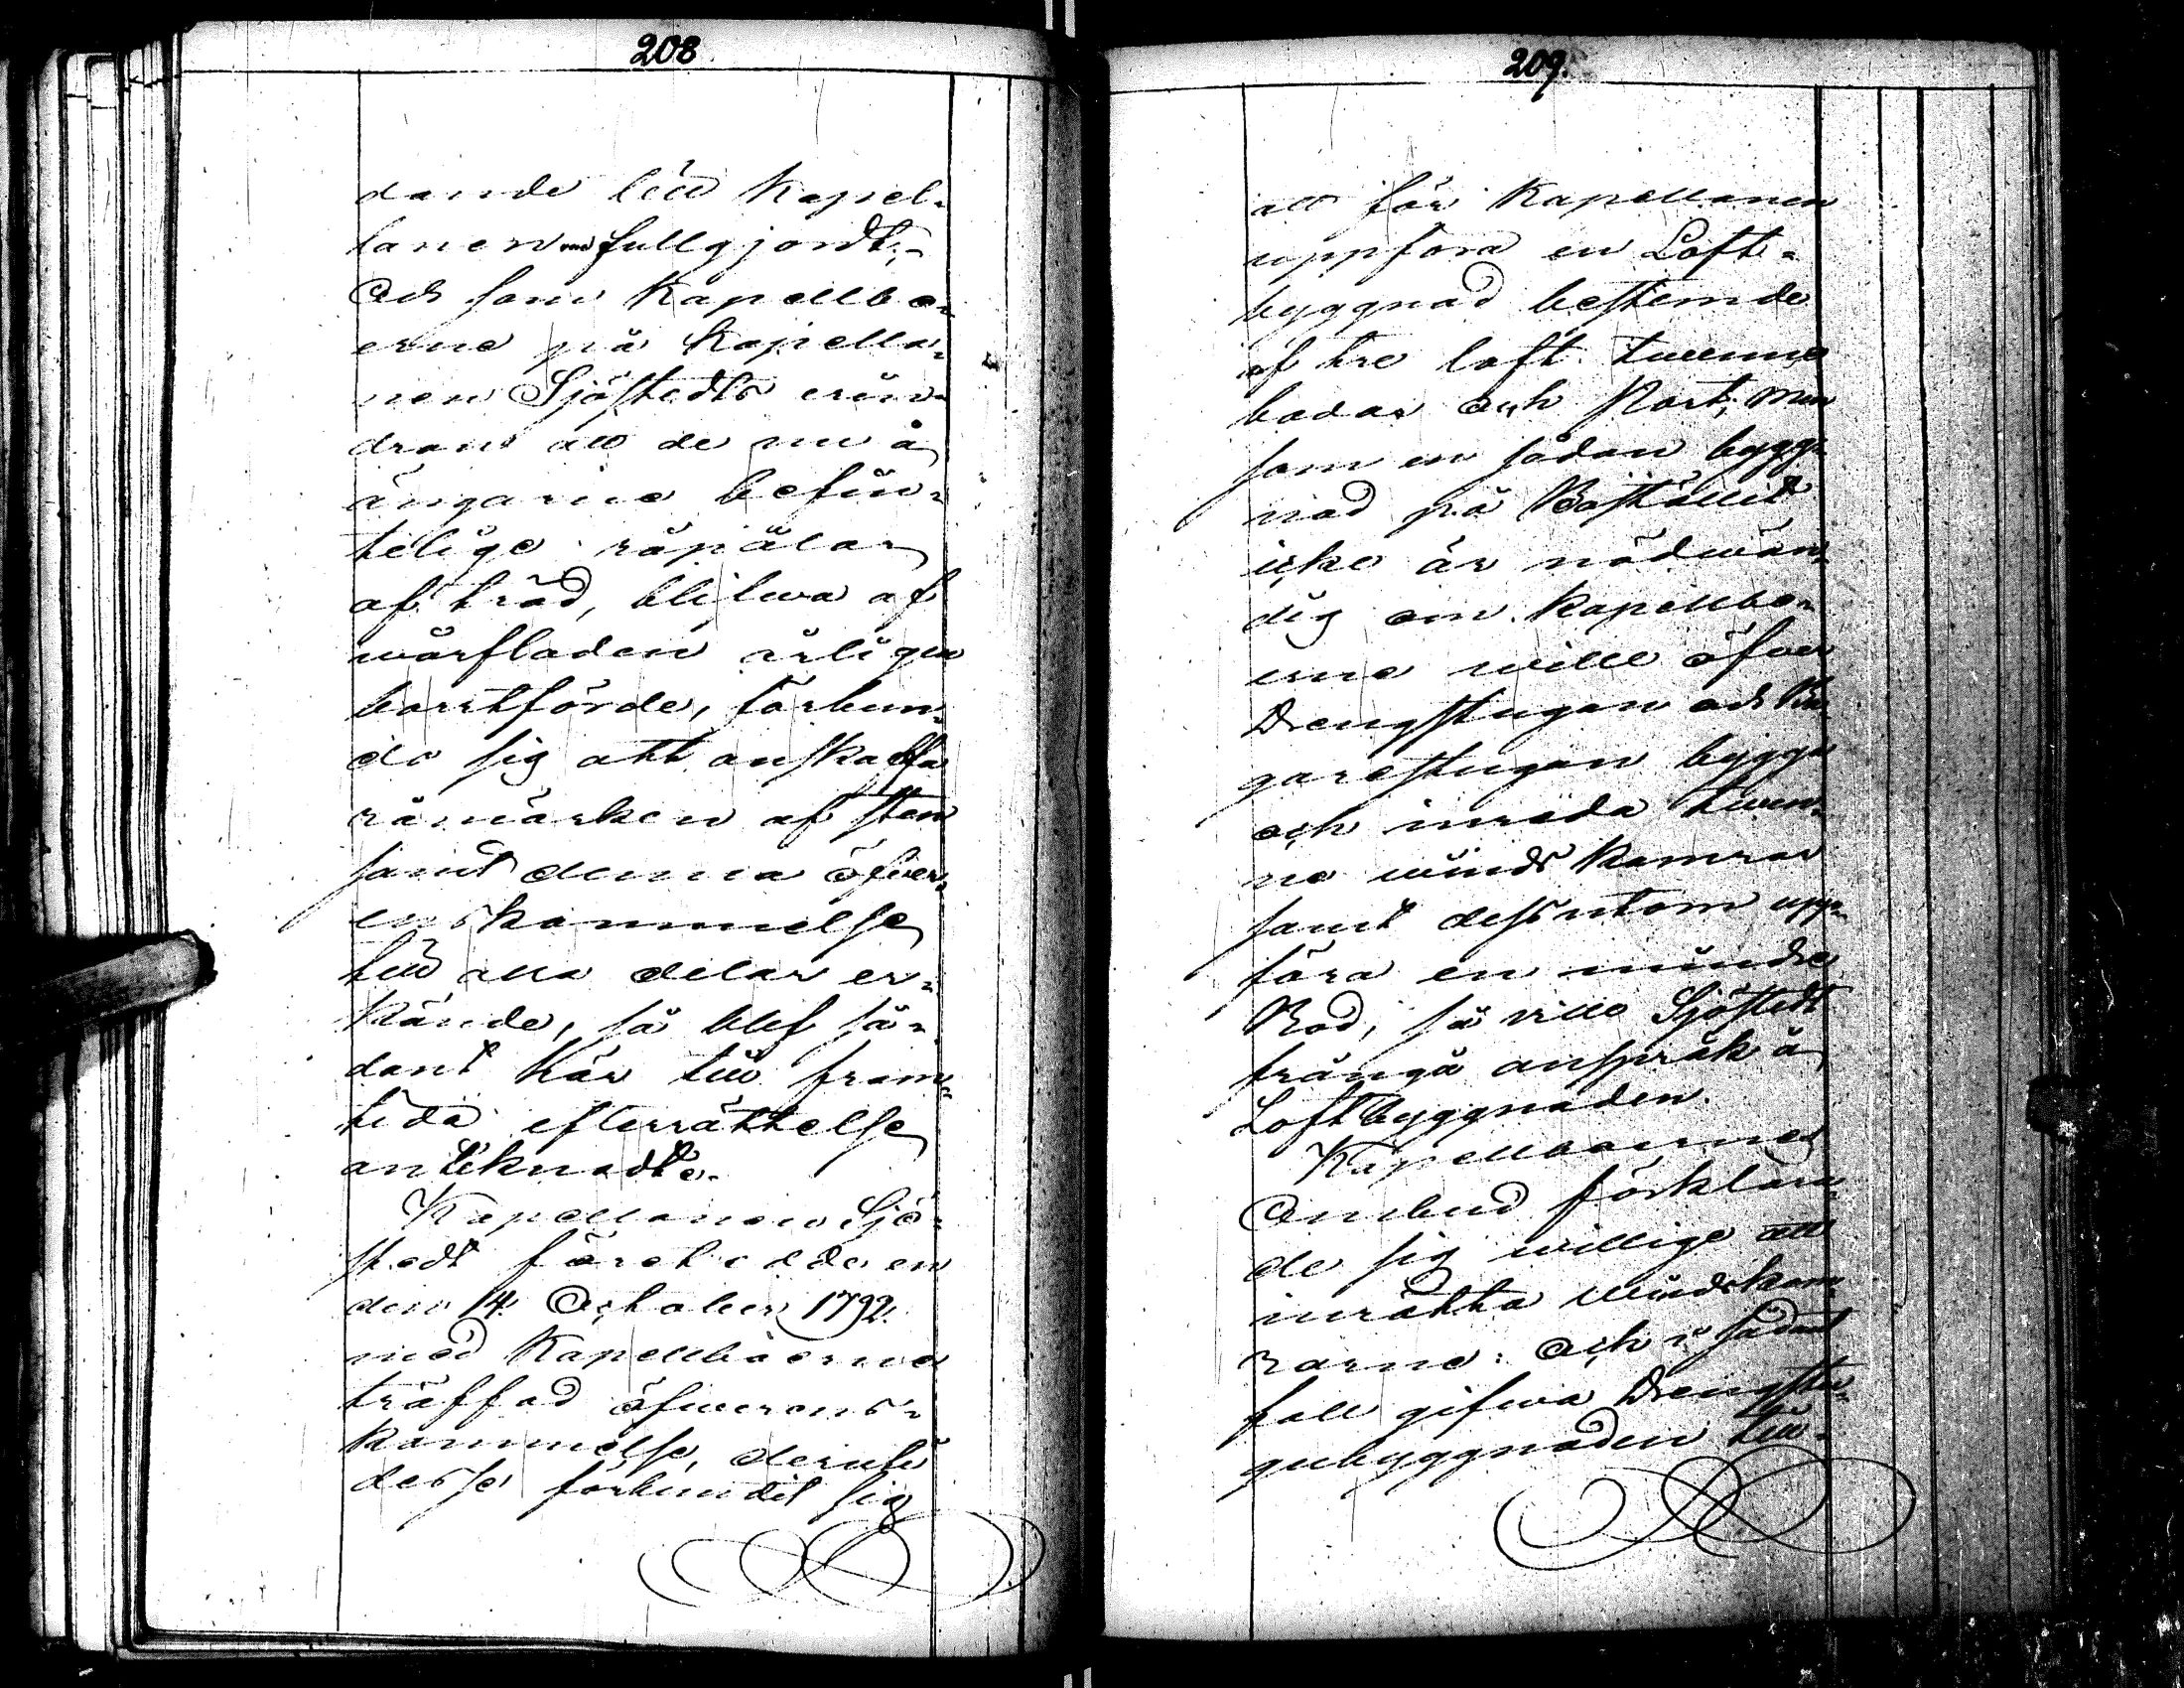 208.
dande till Kapel-
lanen fullgjordt;-
Och som Kapellbo-
erne på Kapella-
nen Sjöstedts erin-
dran att de nu å
ängarne befin-
telige råpålar
af träd, blifwa af
wårfloden årligen
bortförde, förbun-
do sig att anskaffa
råmärken af sten
samt denna öfwer-
enskommelse
till alla delar er-
kände, så blef så-
dant här till fram-
tida efterrättelse
antecknadt.
Kapellanen Sjö-
stedt företedde en
den 14. October 1792.
med Kapellboerne
träffad öfwerens-
kommelse, deruti
desse förbundit sig
209.
att för Kapellanen
uppföra en Loft-
byggnad bestående
af tre loft twenne
bodar och Port; Men
som en sådan bygg-
nad på Bostället
icke är nödwän-
dig om Kapellbo-
erne wille öfwer
Drengstugan och
garestugan bygga
och inreda twen-
ne winds kamrar
samt dessutom upp-
föra en mindre
Bod, så wille Sjöstedt
frångå anspråk å
Loftbyggnaden.
Kapellboernes
Ombud förklara-
de sig willige att
inrätta windskam-
rarne: Och i sådant
fall gifwa Drengstu-
gubyggnaden till-